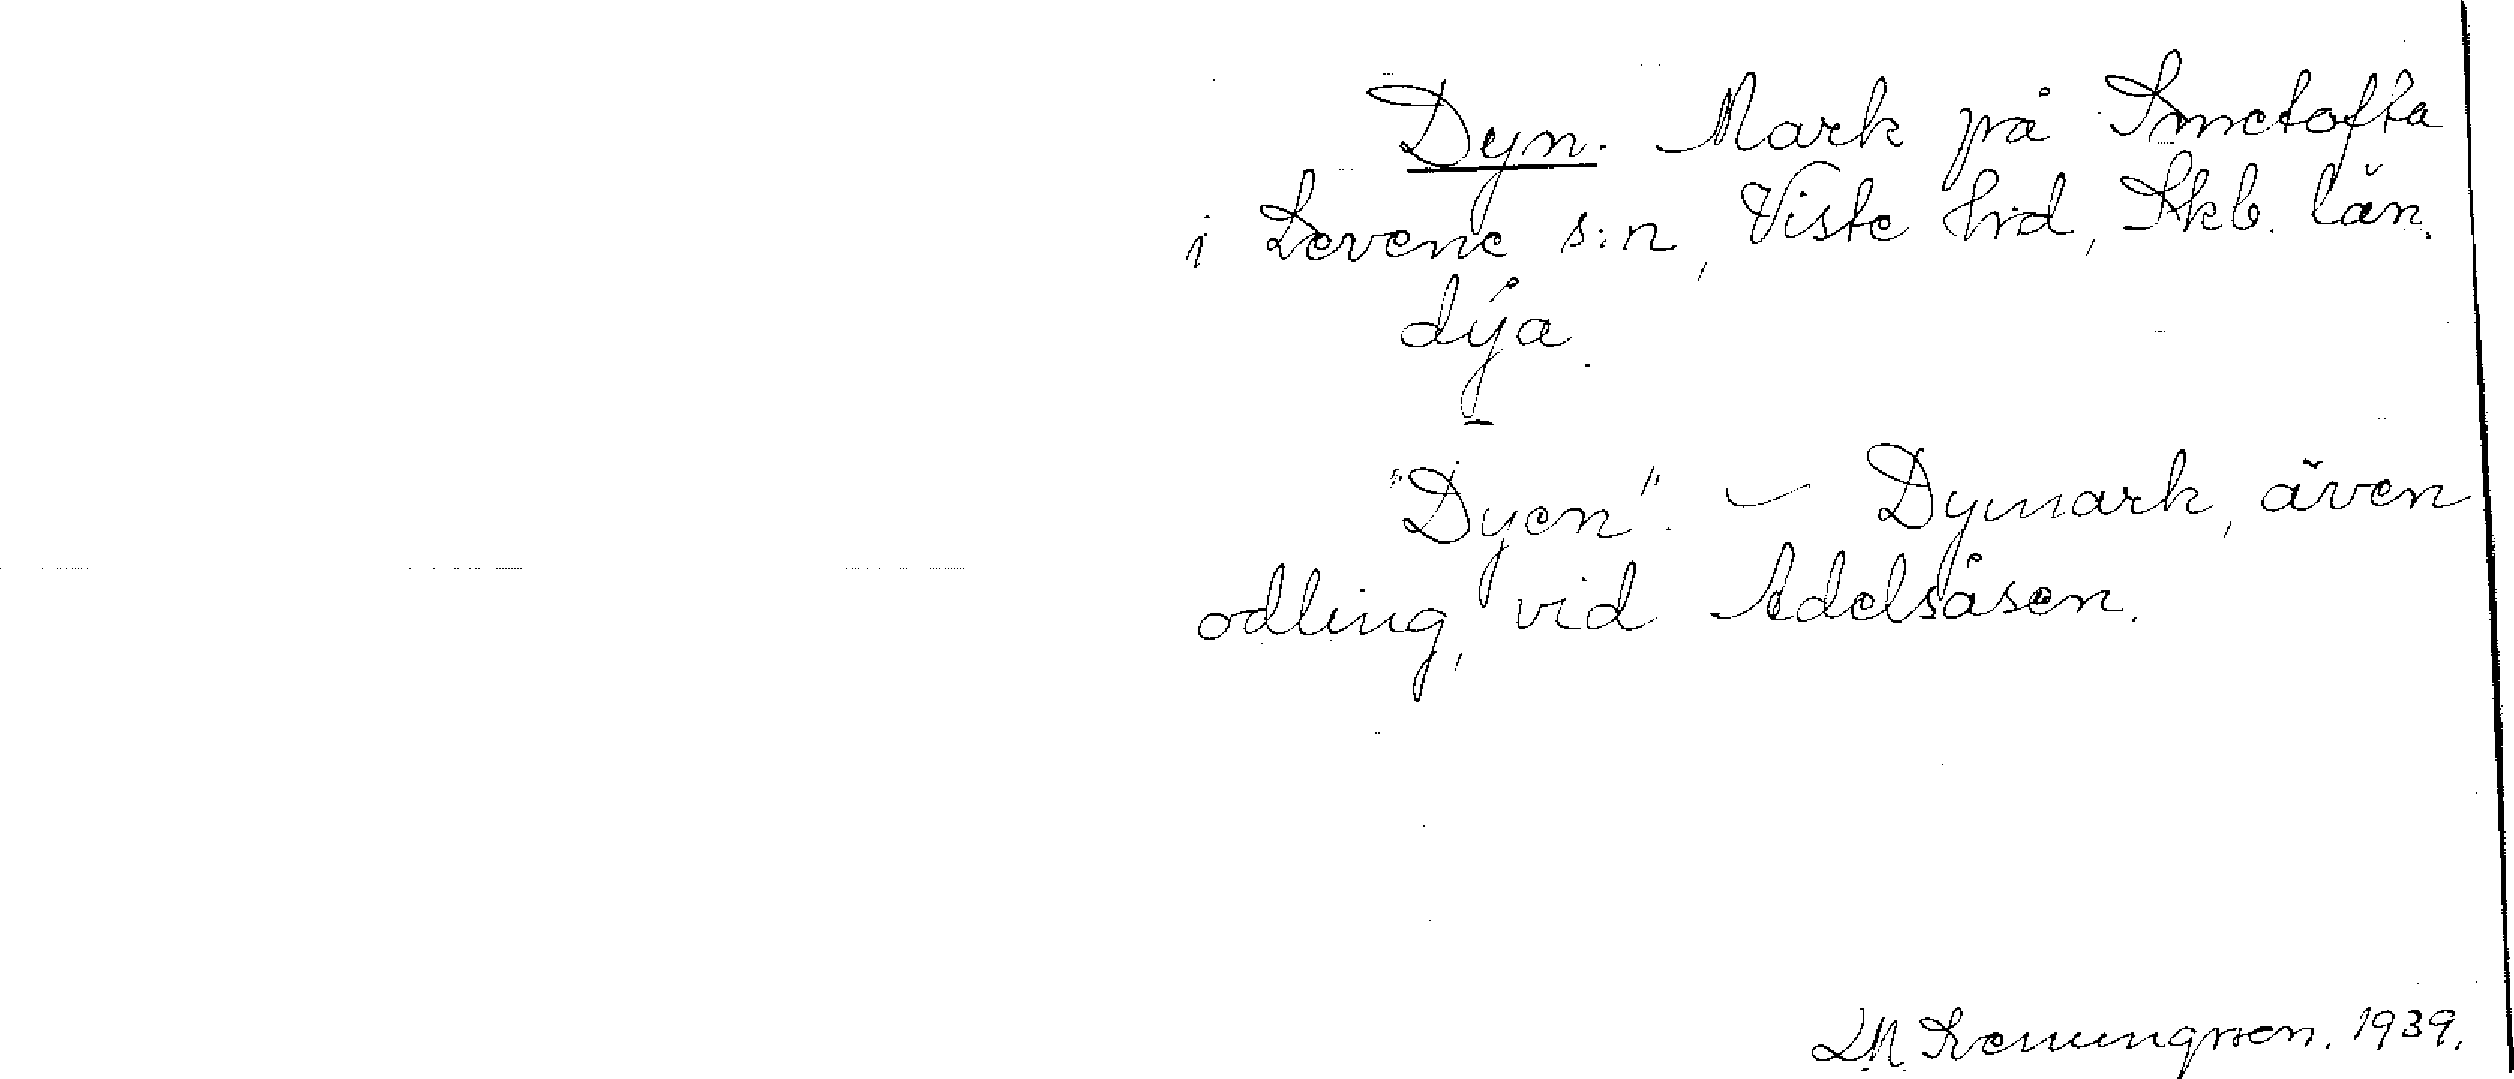 Dyn. Mark på Smetofta
i Levene s:n, Viste hrd, Skb. län.
dýa.
"Dyen". – Dymark, även
odling, vid Adelsåsen.
1939.